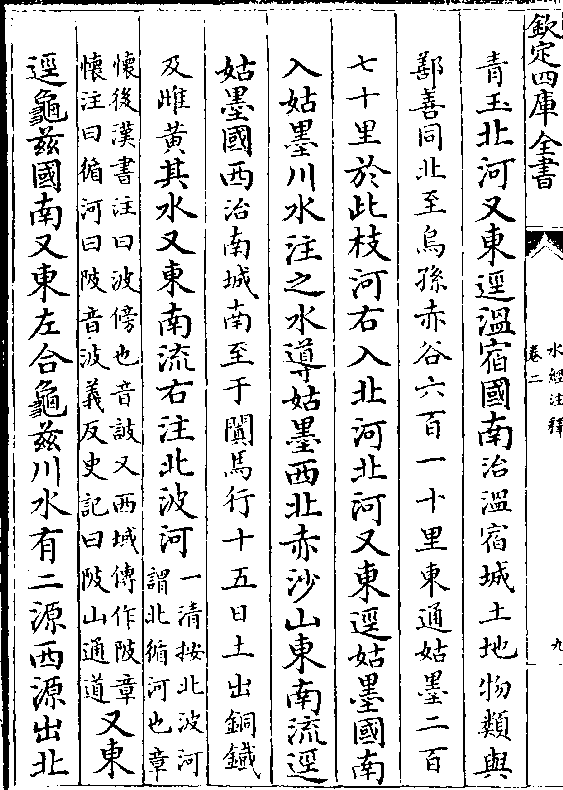 欽定四庫全書
水經注釋
卷二
九
青玉北河又東逕溫宿國南治溫宿城土地物類與
鄯善同北至烏孫赤谷六百一十里東通姑墨二百
七十里於此枝河右入北河北河又東逕姑墨國南
入姑墨川水注之水導姑墨西北赤沙山東南流逕
姑墨國西治南城南至于闐馬行十五日土出銅鐵
及雌黃其水又東南流右注北波河
一清按北波河
謂北循河也章
懷後漢書注曰波傍也音詖又西域傳作陂章
懷注曰循河曰陂音波義反史記曰陂山通道
又東
逕龜茲國南又東左合龜茲川水有二源西源出北